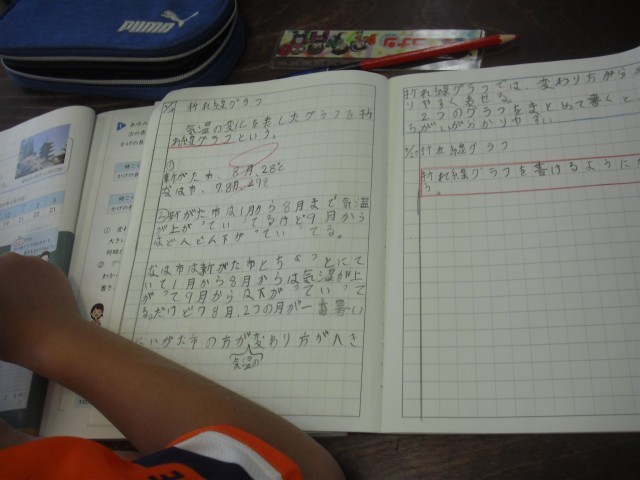 PUMA
折れ線グラフ
気温の変化を表したグラフを折
れ線グラフという。
①
新がた市、8月、28℃
なは市、7、8月、29℃
②新がた市は1月から8月まで気温
が上がっていってるけど9月から
はどんどん下がっていってる。
なは市は新がた市とちょっとにて
いて1月から8月からは気温が上
がって9月からは下がっていって
る。だけど7、8月、2つの月が一番暑い
にいがた市の方が変わり方が大き
気温の
折れ線グラフでは、変わり方がら
りやすく表せる。
2つのグラフをまとめて書くと
ちがいがわかりやすい
折れ線グラフ
折れ線グラフを書けるように
う。